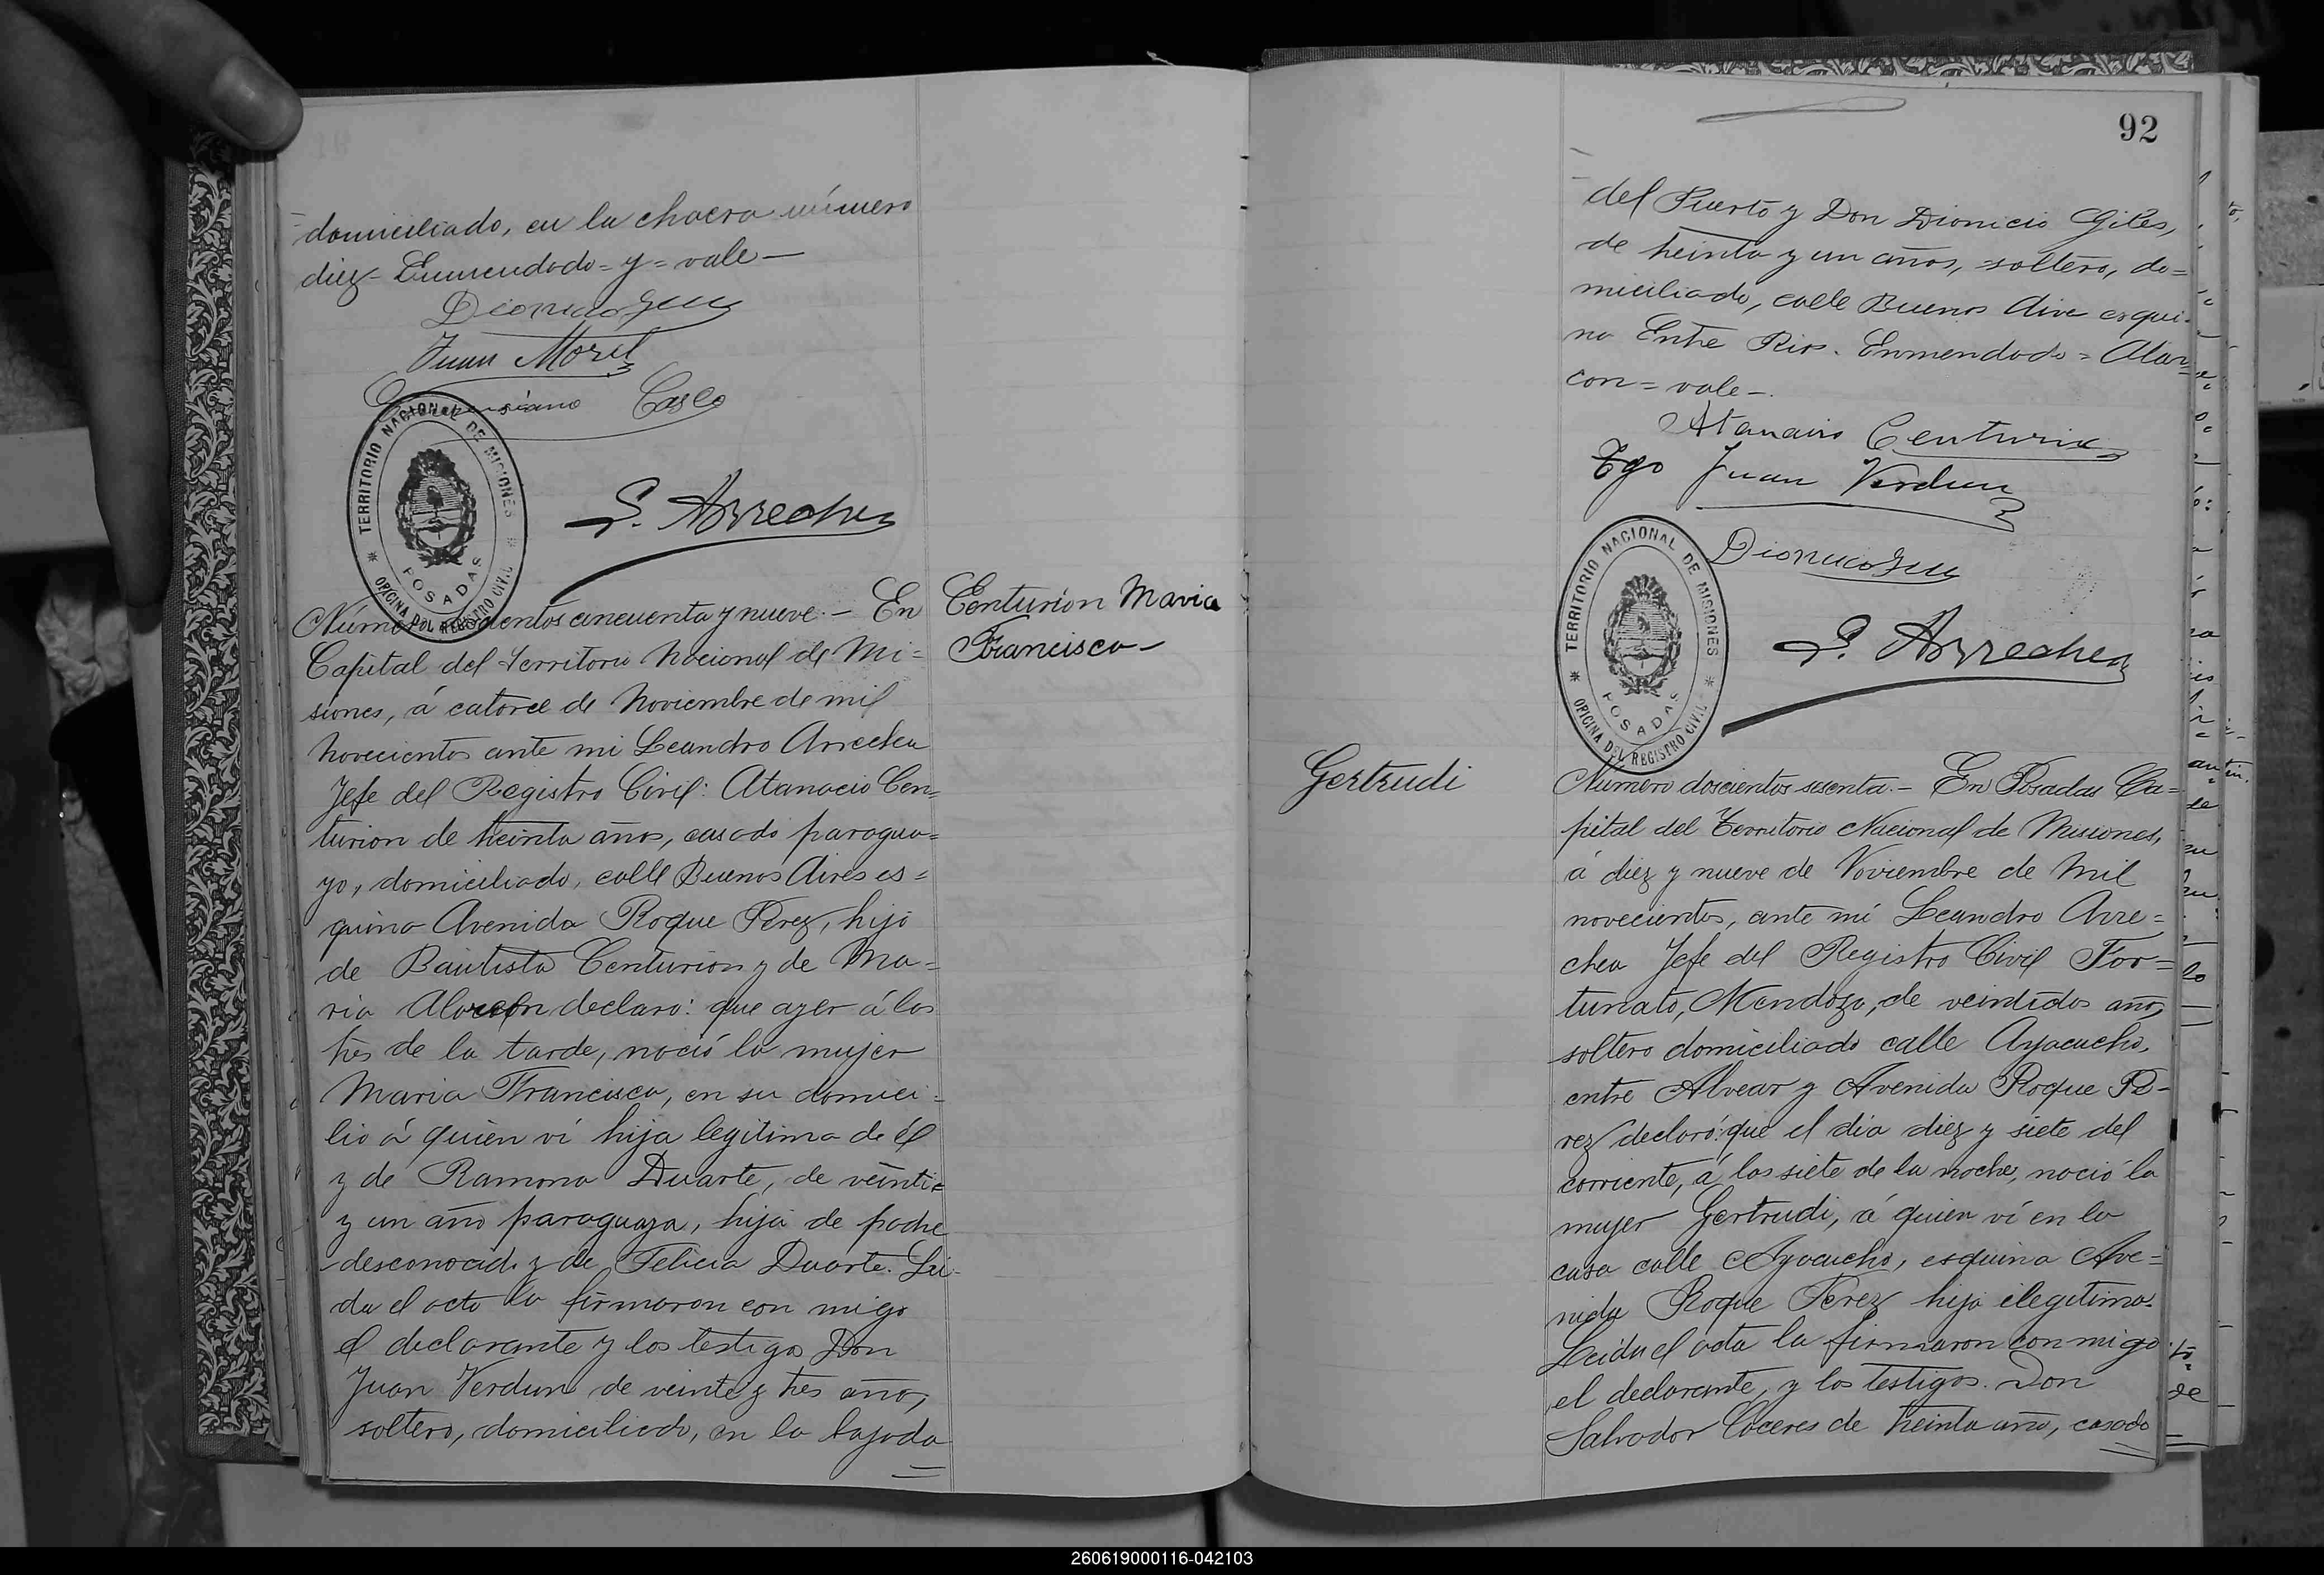 domiciliado, en la chacra número
diez- Enmendado=y=vale-
Juan Morel
Casco
TERRITORIO NACIONAL DE MISIONES
POSADAS
OFICINA DEL REGISTRO CIVIL
L. Arrechea
Número doscientos cincuenta y nueve.- En
Capital del Territorio Nacional de Mi=
siones, á catorce de Noviembre de mil
novecientos ante mi Leandro Arrechea
Jefe del Registro Civil: Atanacio Cen=
turion de treinta años, casado paragua=
yo, domiciliado, calle Buenos Aires es=
quina Avenida Roque Perez, hijo
de Bautista Centurion y de Ma=
ria Alarcon declaro: que ayer á las
tres de la tarde, nació la mujer
Maria Francisca, en su domici=
lio á quien ví hija legitima de él
y de Ramona Duarte, de veinti=
y un año paraguaya, hija de padre
desconocido y de Felicia Duarte. Lei-
da el acta la firmaron con migo
el declarante y los testigos Don
Juan Verdun de veinte y tres año,
soltero, domiciliado, en la bajada
Centurion Maria
Francisca-
92
del Puerto y Don Dionicio Giles,
de treinta y un años, =soltero, do=
miciliado, calle Buenos Aire esqui-
na Entre Rios. Enmendado=Alar=
con=vale-
Atanacio Centurion
Tgo Juan Verdun
TERRITORIO NACIONAL DE MISIONES
POSADAS
OFICINA DEL REGISTRO CIVIL
L. Arrechea
Gertrudi
Número doscientos sesenta.- En Posadas Ca=
pital del Territorio Nacional de Misiones,
á diez y nueve de Noviembre de Mil
novecientos, ante mí Leandro Arre=
chea Jefe del Registro Civil For=
tunato, Mendoza, de veintidos año,
soltero domiciliado calle Ayacucho,
entre Alvear y Avenida Roque Pe-
rez declaró: que el dia diez y siete del
corriente, á las siete de la noche, nació la
mujer Gertrudi, á quien ví en la
casa calle Ayacucho, esquina Ave=
nida Roque Perez hija ilegitima.
Leida el acta la firmaron con migo
el declarante, y los testigos. Don
Salvador Caceres de treinta año, casado
260619000116-042103